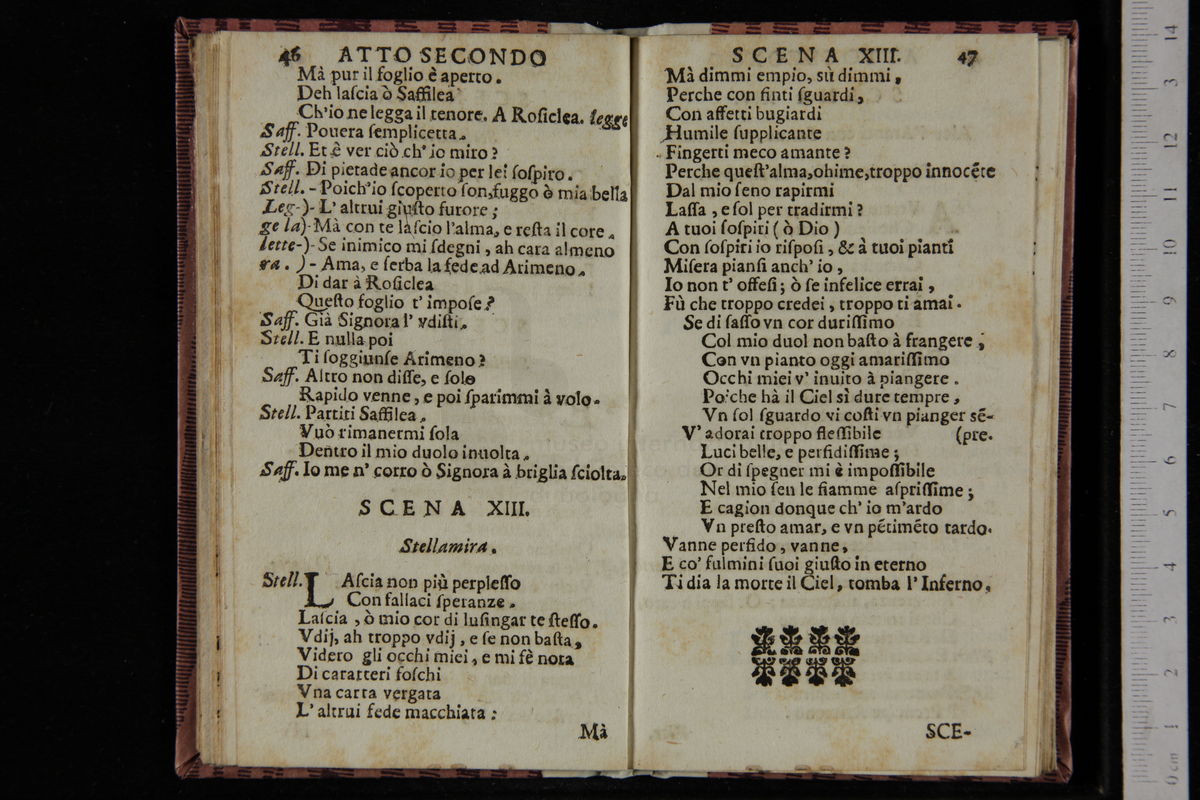 46 ATTO SECONDO
Mà pur il foglio è aperto.
Deh laſcia ò Saffilea
Ch'io ne legga il tenore. A Roſiclea. legge
Saff. Pouera ſemplicetta.
Stell. Et è ver ciò ch' io miro?
Saff. Di pietade ancor io per lei ſoſpiro.
Stell. - Poich'io ſcoperto ſon, fuggo ò mia bella
Leg-)- L' altrui giuſto furore;
ge la)- Mà con te laſcio l'alma, e reſta il core.
lette-)- Se inimico mi ſdegni, ah cara almeno
ra. )- Ama, e ſerba la fede ad Arimeno.
Di dar à Roſiclea
Queſto foglio t' impoſe?
Saff. Già Signora l' vdiſti.
Stell. E nulla poi
Ti ſoggiunſe Arimeno?
Saff. Altro non diſſe, e ſolo
Rapido venne, e poi ſparimmi à volo.
Stell. Partiti Saffilea.
Vuò rimanermi ſola
Dentro il mio duolo inuolta.
Saff. Io me n' corro ò Signora à briglia ſciolta.
SCENA XIII.
Stellamira.
Stell. LAſcia non più perpleſſo
Con fallaci ſperanze.
Laſcia, ò mio cor di luſingar te ſteſſo.
Vdij, ah troppo vdij, e ſe non baſta,
Videro gli occhi miei, e mi fè nota
Di caratteri foſchi
Vna carta vergata
L' altrui fede macchiata:
Mà
SCENA XIII. 47
Mà dimmi empio, sù dimmi,
Perche con finti ſguardi,
Con affetti bugiardi
Humile ſupplicante
Fingerti meco amante?
Perche queſt'alma, ohime, troppo innocẽte
Dal mio ſeno rapirmi
Laſſa, e ſol per tradirmi?
A tuoi ſoſpiti (ò Dio)
Con ſoſpiri io riſpoſi, & à tuoi pianti
Miſera pianſi anch' io,
Io non t' offeſi; ò ſe infelice errai,
Fù che troppo credei, troppo ti amai.
Se di ſaſſo vn cor duriſſimo
Col mio duol non baſto à frangere;
Con vn pianto oggi amariſſimo
Occhi miei v' inuito à piangere.
Poiche hà il Ciel sì dure tempre,
Vn ſol ſguardo vi coſti vn pianger sẽ-
V' adorai troppo fleſſibile (pre.
Luci belle, e perfidiſſime;
Or di ſpegner mi è impoſſibile
Nel mio ſen le fiamme aſpriſſime;
E cagion donque ch' io m'ardo
Vn preſto amar, e vn pẽtimẽto tardo.
Vanne perfido, vanne,
E co' fulmini ſuoi giuſto in eterno
Ti dia la morte il Ciel, tomba l' Inferno.
SCE-
14
13
12
11
10
9
8
7
6
5
4
3
2
1
0 cm